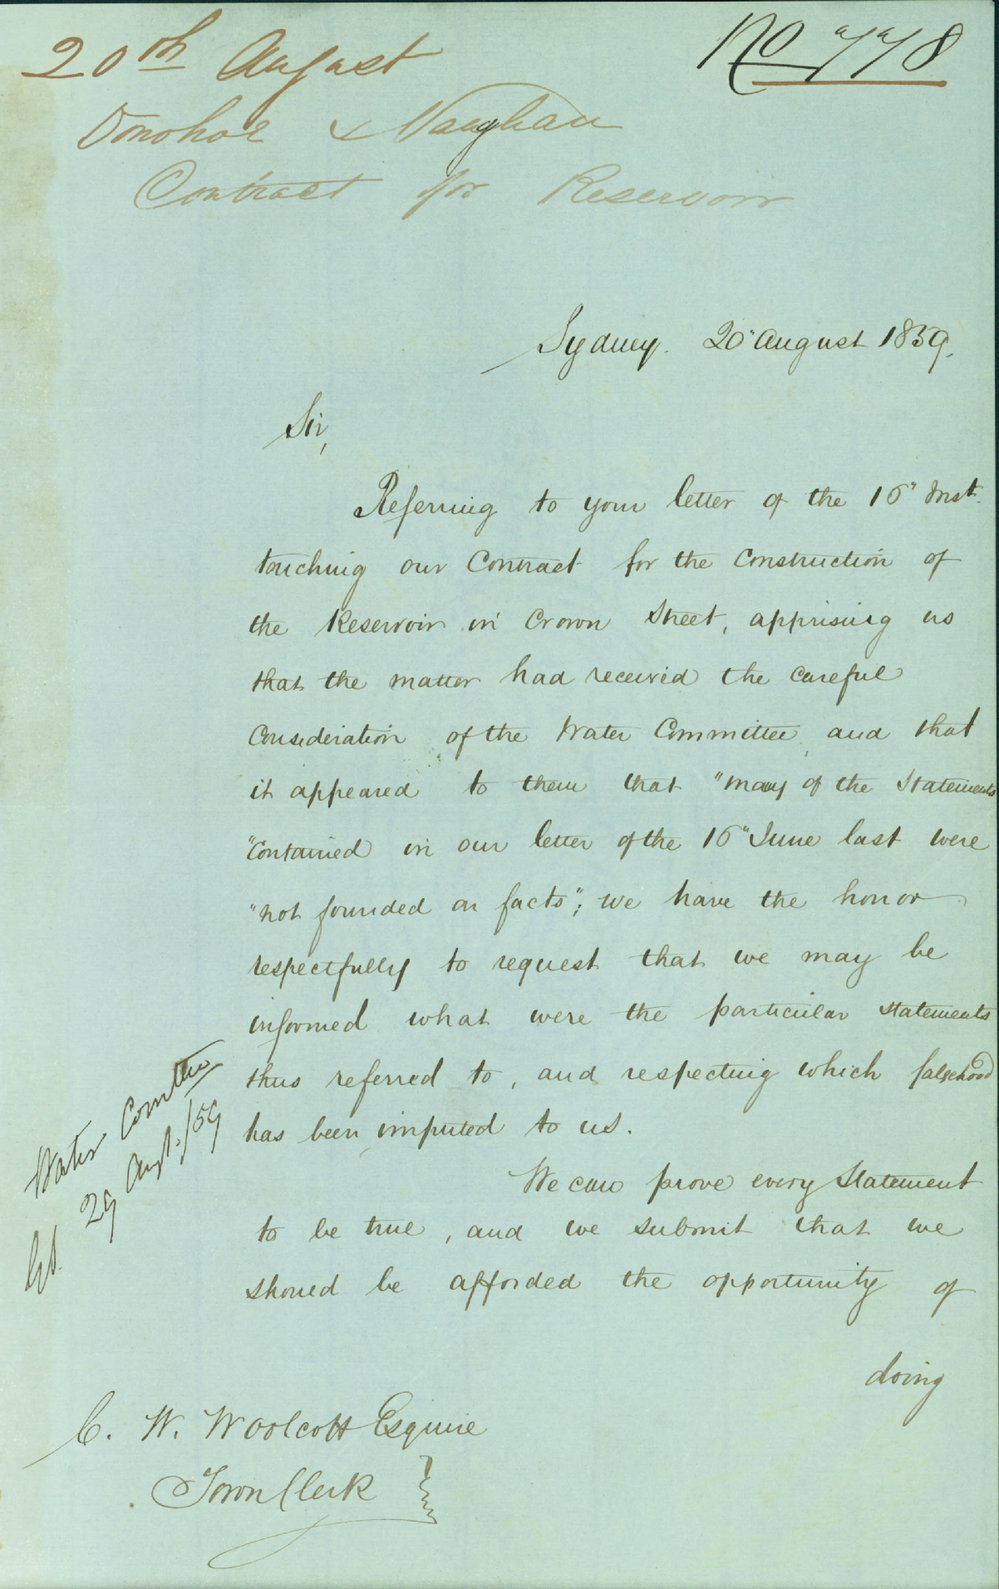 20th August
No 778
Donohoe & Vaughan
Contract for Reservoir
Sydney. 20" August 1859.
Sir,
Referring to your letter of the 16" Inst.
touching our Contract for the Construction of
the Reservoir in Crown Street, apprising us
that the matter had received the careful
Consideration of the Water Committee, and that
it appeared to them that "many of the Statements
"Contained in our letter of the 16" June last were
"not founded on facts"; we have the honor
respectfully to request that we may be
informed what were the particular statements
thus referred to, and respecting which falsehood
has been imputed to us.
We can prove every Statement
to be true, and we submit that we
should be afforded the opportunity of
doing
Water Comttee
29 Augt./59
C. W. Woolcott Esquire
Town Clerk